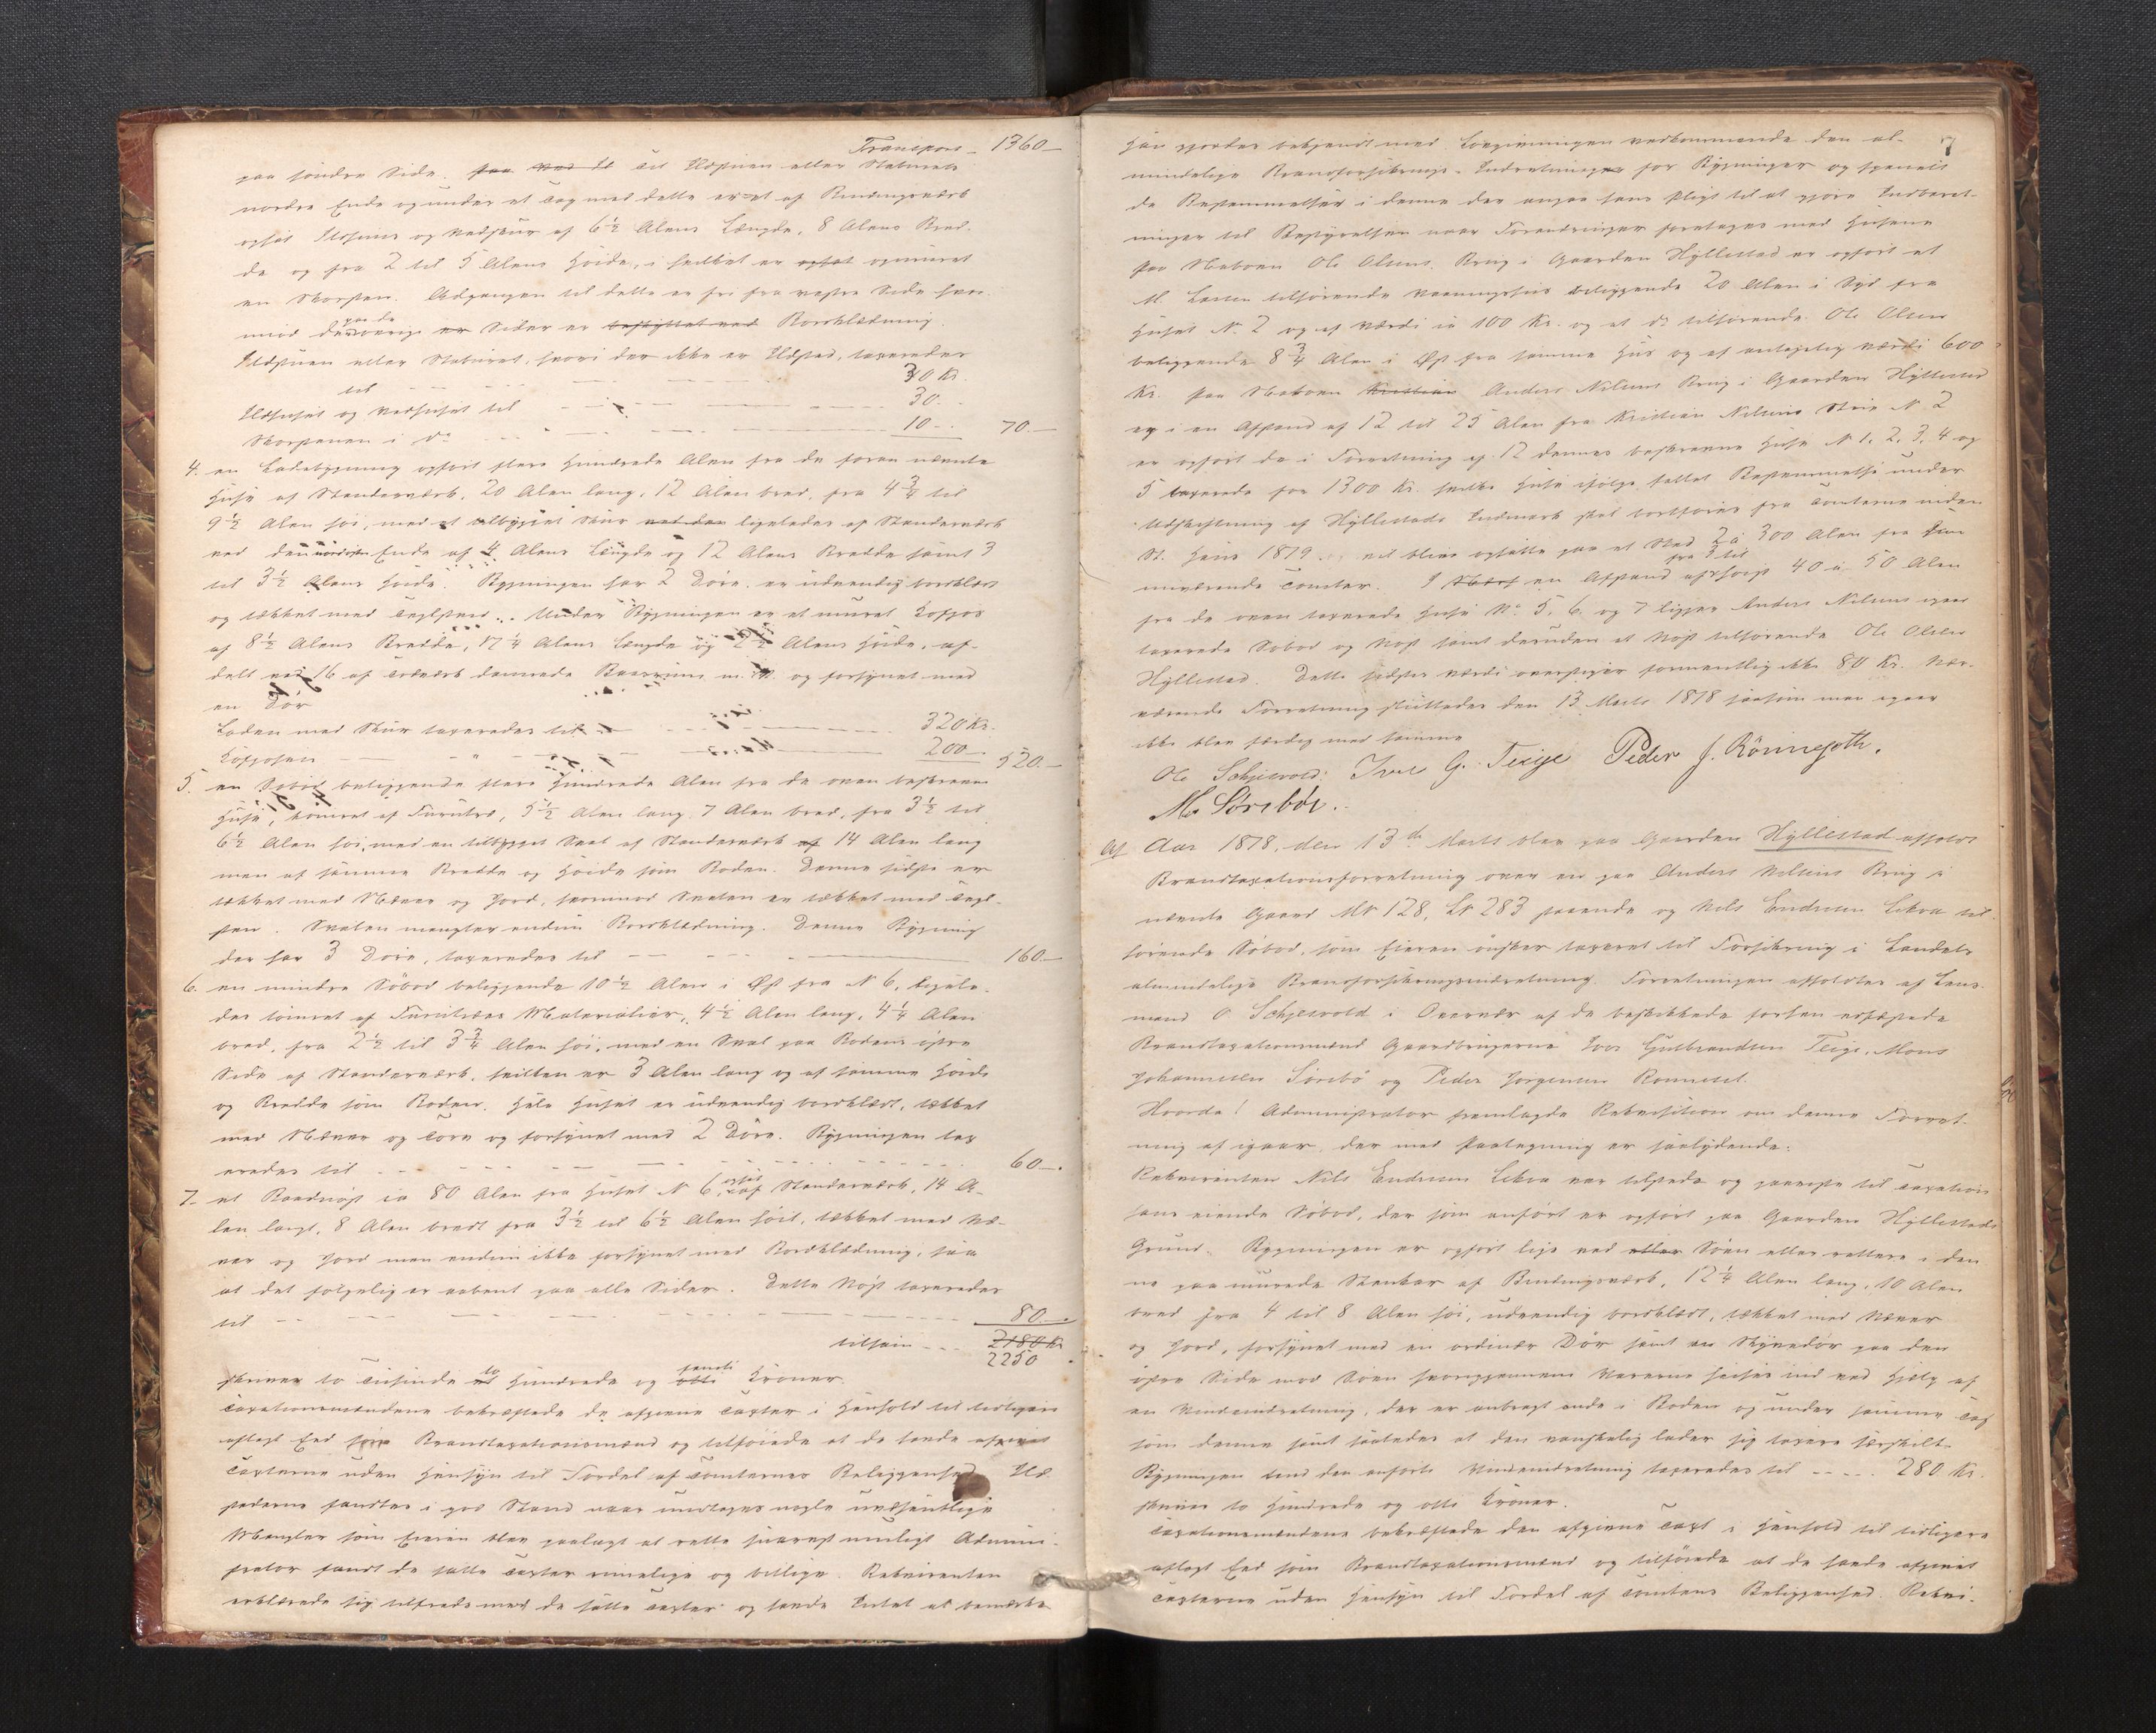 Transport - 1360 -
paa søndre Side. Til Ildstuen eller Staburets
nordre Ende og under et Tag med dette er et af Bindingsværk
opsat Ildhuus og Vedskuur af 6 1/2 Alens Længde, 8 Alens Bred-
de og fra 2 til 5 Alens Høide, i hvilket er opmuret
en Skorsten. Adgangen til dette er fri fra vestre Side hvor-
imod paa de øvrige Sider er Bordklædning.
Ildstuen eller Staburet, hvori der ikke er Ildsted, taxeredes
til 30 Kr.
Ildhuset og Vedhuset til 30.
Skorstenen i do 10 - 70.-
4. en Ladebygning opført flere Hundrede Alen fra de foran nævnte
Huse af Stenderværk, 20 Alen lang, 12 Alen bred, fra 4 3/4 til
9 1/2 Alen høi, med et tilbygget Skur ligeledes af Stenderværk
ved den nordre Ende af 4 Alens Længde og 12 Alens Bredde samt 3
til 3 1/2 Alens Høide. Bygningen har 2 Døre, er udvendig bordklædt
og tækket med Taglsten. Under Bygningen er et muret Kofjøs
af 8 1/2 Alens Bredde, 17 1/4 Alens Længde og 2 1/2 Alens Høide, af-
delt ved 16 af Træværk dannede Baasrum m.V. og forsynet med
en Dør
Laden med Skur taxeredes til 320 Kr.
Kofjøsen - " - 200 - 520.-
5. en Søbod beliggende flere Hundrede Alen fra de oven beskrevne
Huse, tømret af Furutræ, 5 1/2 Alen lang, 7 Alen bred, fra 3 1/2 til
6 1/2 Alen høi, med en tilbygget Sval af Stenderværk af 14 Alen lang
men af samme Bredde og Høide som Boden. Denne sidste er
tækket med Næver og Jord, hvorimod Svalen er tækket med Tagl-
sten. Svalen mangler endnu Bordklædning. Denne Bygning
der har 3 Døre, taxeredes til 160.-
6. en mindre Søbod beliggende 10 1/2 Alen i Øst fra N 6, ligele-
des tømret af Furutræes Materialier, 4 1/2 Alen lang, 4 1/4 Alen
bred, fra 2 1/2 til 3 3/4 Alen høi, med en Sval paa Bodens østre
Side af Stenderværk, hvilken er 3 Alen lang og af samme Høide
og Bredde som Boden. Hele Huset er udvendig bordklædt, tækket
med Næver og Torv og forsynet med 2 Døre. Bygningen tax
eredes til 60.-
7. et Baadnøst ca 80 Alen fra Huset N 6, opsat af Stenderværk, 14 A-
len langt, 8 Alen bredt fra 3 1/2 til 6 1/2 Alen høit, tækket med Næ-
ver og Jord men endnu ikke forsynet med Bordklædning, saa
at det følgelig er aabent paa alle Sider. Dette Nøst taxeredes
til 80.-
tilsam - - - 2180 Kr
2250
skriver to Tusinde to Hundrede og femti Kroner.
Taxationsmændene bekræftede de afgivne Taxter i Henhold til tidligere
aflagt Eed som Brandtaxationsmænd og tilføiede at de havde afgivet
Taxterne uden Hensyn til Fordel af Tomternes Beliggenhed. Ild-
stederne fandtes i god Stand naar undtages nogle uvæsentlige
Mangler som Eieren blev paalagt at rette snarest muligt. Admini-
strator fandt de satte Taxter rimelige og billige. Rekvirenten
erklærede sig tilfreds med de satte Taxter og havde Intet at bemærke
7
Han gjordes bekjendt med Lovgivningen vedkommende den al-
mindelige Brandforsikrings-Indretninger for Bygninger og specielt
de Bestemmelser i denne der angaa hans Pligt til at gjøre Indberet-
ninger til Bestyrelsen naar Forandringer foretages med Husene
Paa Naboen Ole Olsens Brug i Gaarden Hyllestad er opført et
M. Larsen tilhørende Vaaningshus beliggende 20 Alen i Syd fra
Huset N. 2 og af Værdi ca 100 Kr. og et do tilhørende Ole Olsen
beliggende 8 3/4 Alen i Øst fra samme Hus og af antagelig Værdi 600
Kr. Paa Naboen Kristian Anders Nilsens Brug i Gaarden Hyllestad
og i en Afstand af 12 til 25 Alen fra Kristian Nilsens Hus N 2
er opført de i Forretning af 12 dennes beskrevne Huse N 1, 2, 3, 4 og
5 taxerede for 1300 Kr. hvilke Huse ifølge fattet Bestemmelse under
Udskiftning af Hyllestads Indmark skal bortføres fra Tomterne inden
St. Hans 1879 og vil blive opsatte paa et Sted 2 a 300 Alen fra sine
nuværende Tomter. I en Afstand fra 3 til høist 40 a 50 Alen
fra de oven taxerede Huse No 5, 6 og 7 ligger Anders Nilsens igaar
taxerede Søbod og Nøst samt desuden et Nøst tilhørende Ole Olsen
Hyllestad. Dette sidstes Værdi overstiger formentlig ikke 80 Kr. Nær-
værende Forretning sluttedes den 13 Marts 1878 saasom man igaar
ikke blev færdig med samme
Ole Schjesvold. Iver G. Teige Peder J. Rönnesöth.
M. Sørebøe.
Aar 1878, den 13de Marts blev paa Gaarden Hyllestad afholdt
Brandtaxationsforretning over en paa Anders Nilsens Brug i
nævnte Gaard MN 128, LN 283 staaende og Nils Endresen Lekva til-
hørende Søbod, som Eieren ønsker taxeret til Forsikring i Landets
almindelige Brandforsikringsindretning. Forretningen afholdtes af Lens-
mand O Schjesvold i Overvær af de beskikkede forhen edfæstede
Brandtaxationsmænd Gaardbrugerne Iver Gulbrandsen Teige, Mons
Johannesen Sörebö og Peder Jørgensen Rønneset.
Hvorda! Administrator fremlagde Rekvisition om denne Forret-
ning af igaar, der med Paategning er saalydende:
Rekvirenten Nils Endresen Lekva var tilstede og paaviste til Taxation
hans eiende Søbod, der som anført er opført paa Gaarden Hyllestads
Grund. Bygningen er opført lige ved eller Søen eller rettere i den-
ne paa murede Stenkar af Bindingsværk, 12 1/4 Alen lang, 10 Alen
bred fra 4 til 8 Alen høi, udvendig bordklædt, tækket med Næver
og Jord, forsynet med en ordinær Dør samt en Skyvedør paa den
østre Side mod Søen hvorigjennem Varerne heises ind ved Hjælp af
en Vindeindretning, der er anbragt inde i Boden og under samme Tag
som denne samt saaledes at den vanskelig lader sig taxere særskilt.
Bygningen med den anførte Vindeindretning taxeredes til - - - - 280 Kr.
skriver to Hundrede og otti Kroner.
Taxationsmændene bekræftede den afgivne Taxt i Henhold til tidligere
aflagt Eed som Brandtaxationsmænd og tilføiede at de havde afgivet
Taxterne uden Hensyn til Fordel af Tomtens Beliggenhed. Rekvi-